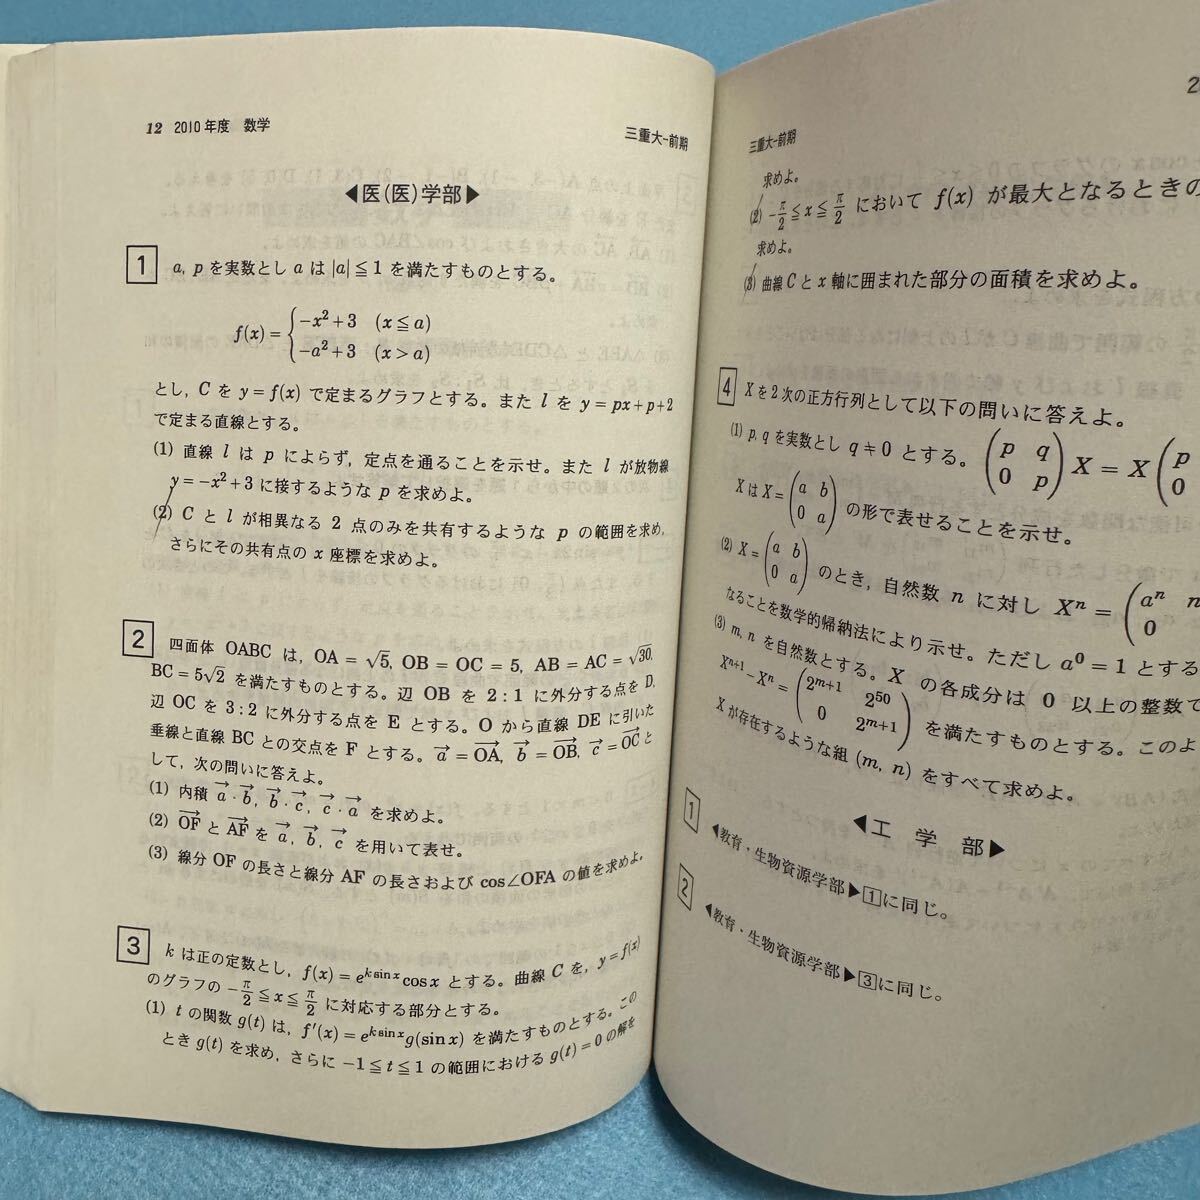 12 2010年度 数学
三重大-前期
◀医(医)学部▶
1 a, p を実数とし a は |a|≦1 を満たすものとする。
f(x)={ -x²+3 (x≦a)
-a²+3 (x>a)
とし, C を y=f(x) で定まるグラフとする。また l を y=px+p+2
で定まる直線とする。
(1) 直線 l は p によらず, 定点を通ることを示せ。また l が放物線
y=-x²+3 に接するような p を求めよ。
(2) C と l が相異なる 2 点のみを共有するような p の範囲を求め,
さらにその共有点の x 座標を求めよ。
2 四面体 OABC は, OA=√5, OB=OC=5, AB=AC=√30,
BC=5√2 を満たすものとする。辺 OB を 2:1 に外分する点を D,
辺 OC を 3:2 に外分する点を E とする。O から直線 DE に引いた
垂線と直線 BC との交点を F とする。a→=OA→, b→=OB→, c→=OC→ と
して, 次の問いに答えよ。
(1) 内積 a→・b→, b→・c→, c→・a→ を求めよ。
(2) OF→ と AF→ を a→, b→, c→ を用いて表せ。
(3) 線分 OF の長さと線分 AF の長さおよび cos∠OFA の値を求めよ。
3 k は正の定数とし, f(x)=e^{k sin x} cos x とする。曲線 C を, y=f(x)
のグラフの -π/2≦x≦π/2 に対応する部分とする。
(1) t の関数 g(t) は, f'(x)=e^{k sin x} g(sin x) を満たすものとする。この
とき g(t) を求め, さらに -1≦t≦1 の範囲における g(t)=0 の解を
三重大-前期
求めよ。
(2) -π/2≦x≦π/2 において f(x) が最大となるときの
求めよ。
(3) 曲線 C と x 軸に囲まれた部分の面積を求めよ。
4 X を 2 次の正方行列として以下の問いに答えよ。
(1) p, q を実数とし q≠0 とする。(p q / 0 p)X=X(p / 0
X は X=(a b / 0 a) の形で表せることを示せ。
(2) X=(a b / 0 a) のとき, 自然数 n に対し Xⁿ=(aⁿ n / 0
なることを数学的帰納法により示せ。ただし a⁰=1 とする
(3) m, n を自然数とする。X の各成分は 0 以上の整数で
Xⁿ⁺¹-Xⁿ=(2^{m+1} 2^{50} / 0 2^{m+1}) を満たすものとする。このよ
X が存在するような組 (m, n) をすべて求めよ。
◀工 学 部▶
1 ◀教育・生物資源学部▶1に同じ。
2 ◀教育・生物資源学部▶3に同じ。